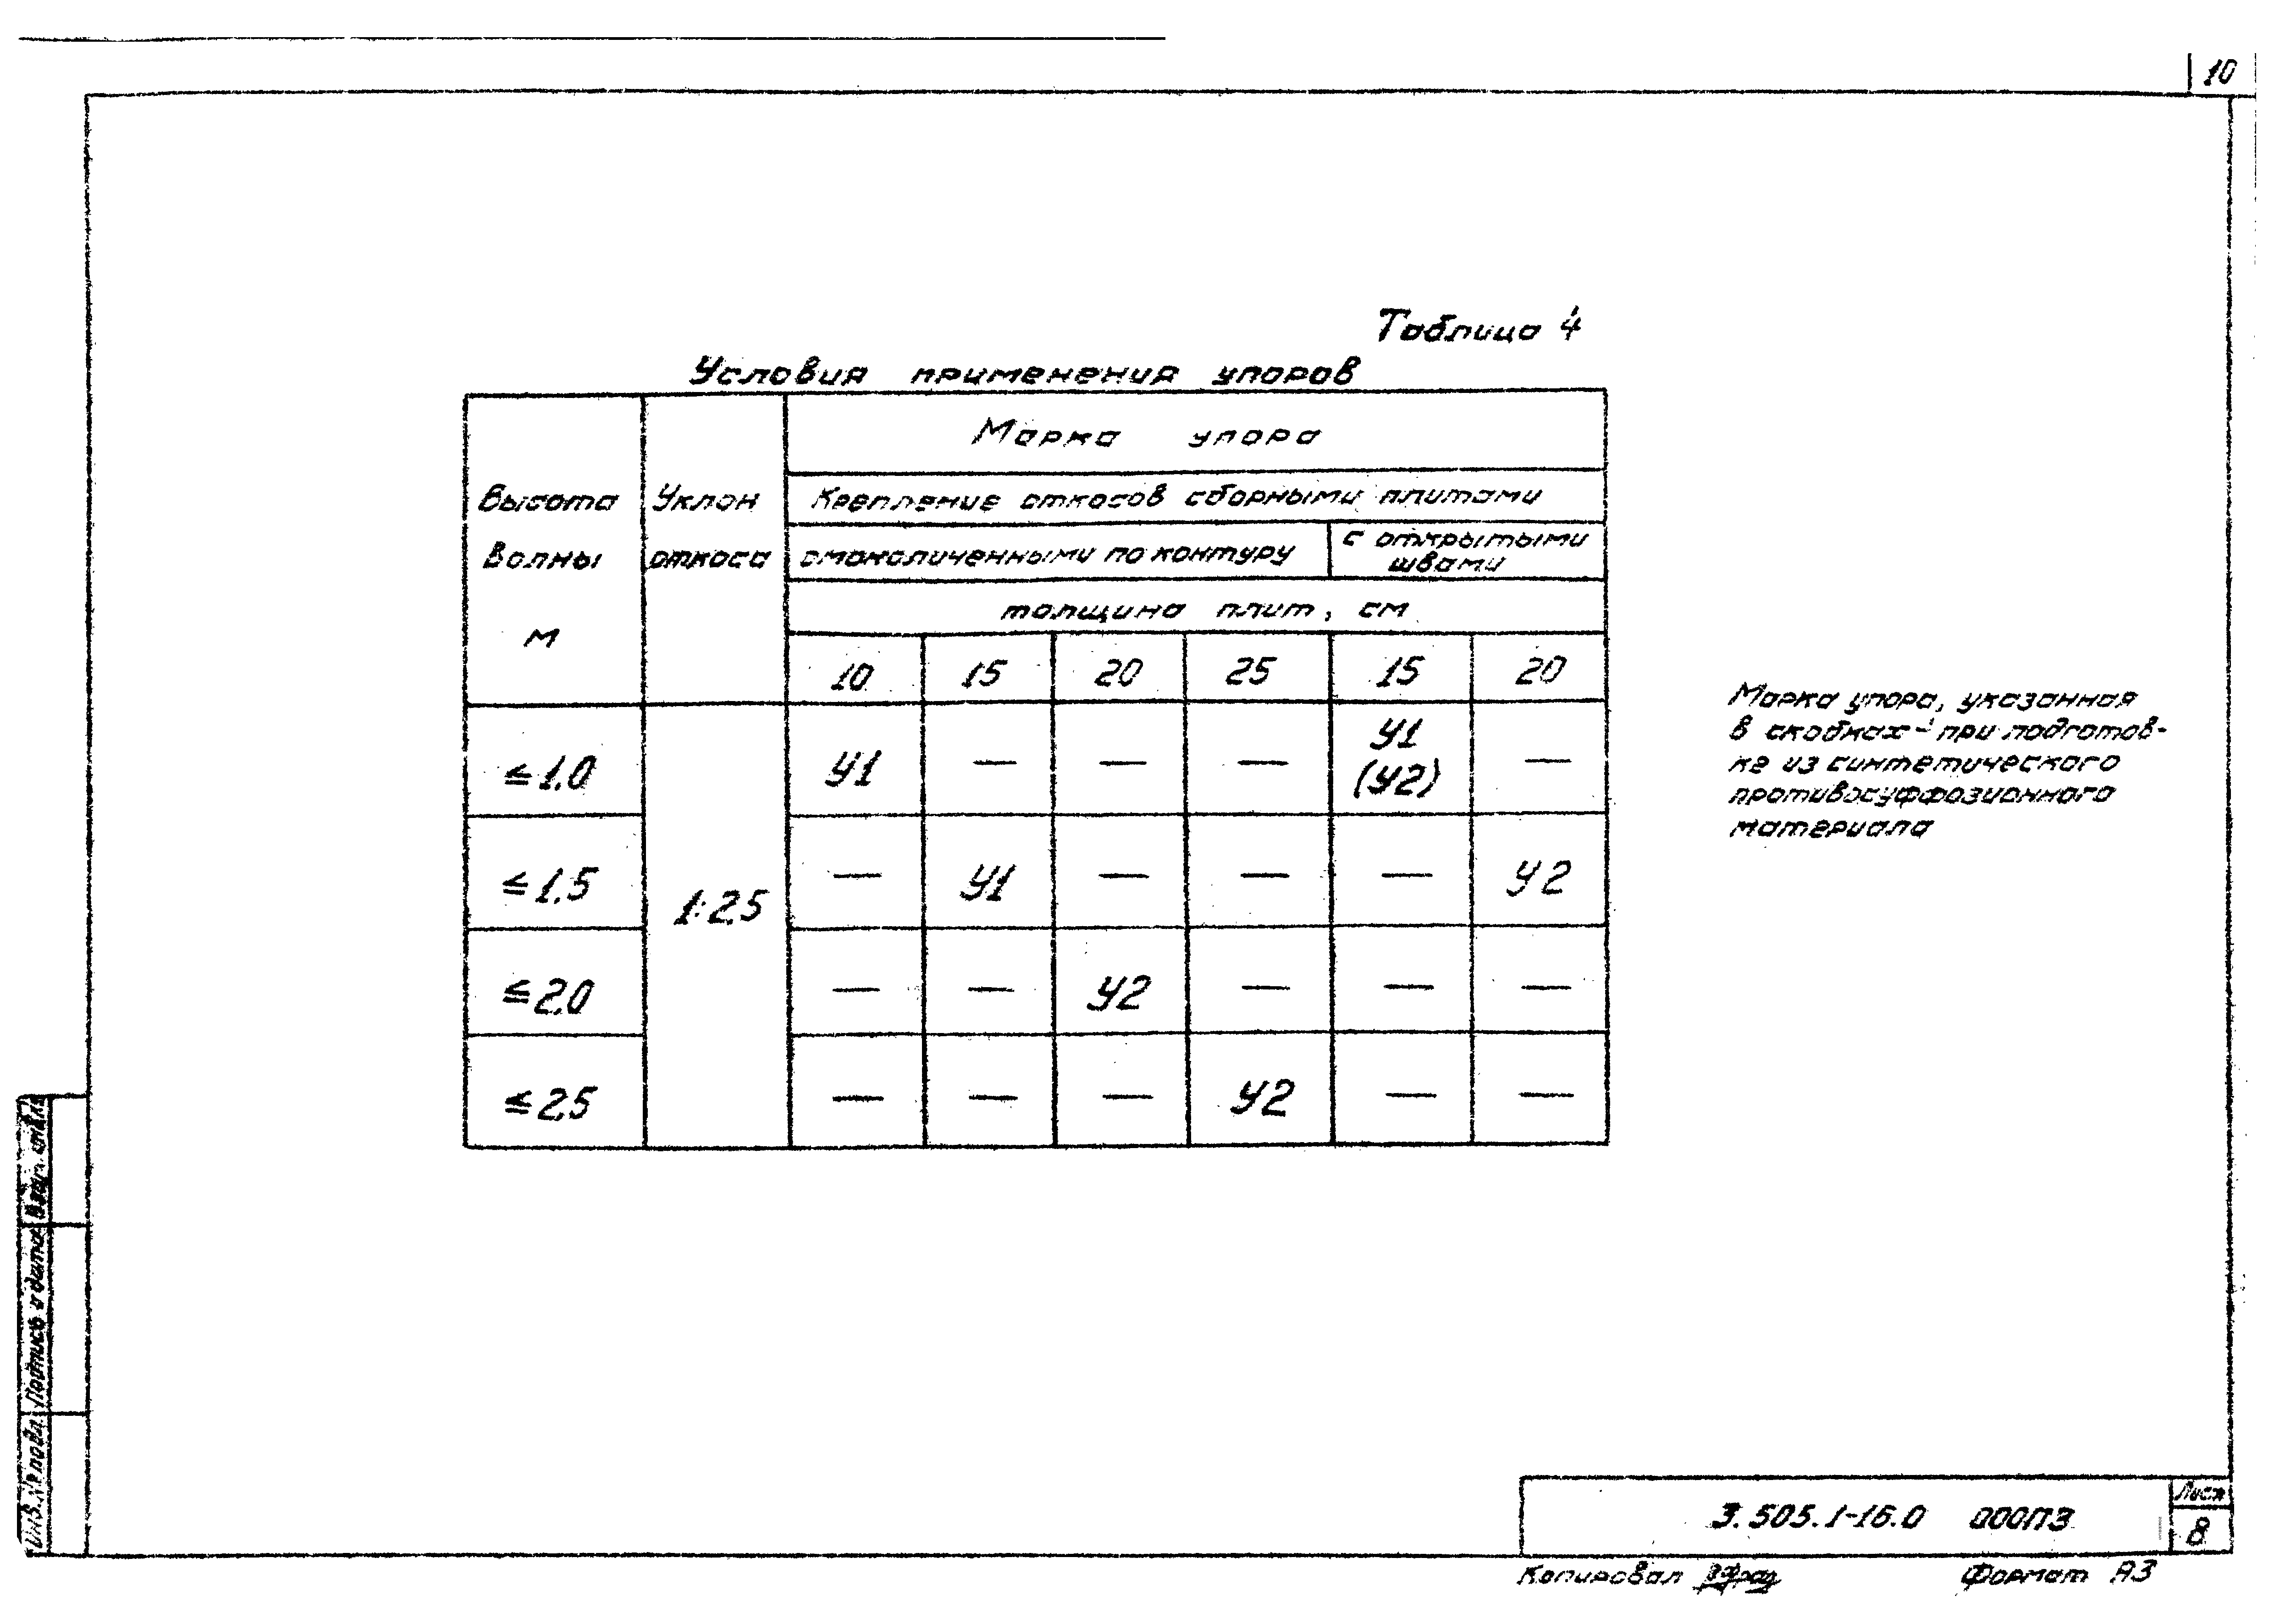 10
Таблица 4
Условия применения упоров
Марка упора
Высота волны м
Уклон откоса
Крепление откосов сборными плитами
омоноличенными по контуру
с открытыми
швами
толщина плит, см
10 15 20 25 15 20
≤1,0 У1 — — — У1 (У2) —
≤1,5 1:2,5 — У1 — — — У2
≤2,0 — — У2 — — —
≤2,5 — — — У2 — —
Марка упора, указанная
в скобках - при подготов-
ке из синтетического
противосуффозионного
материала
Инв. № подл. Подпись и дата Взам. инв. №
3.505.1-16.0 000ПЗ
Лист
8
Копировал
Формат А3